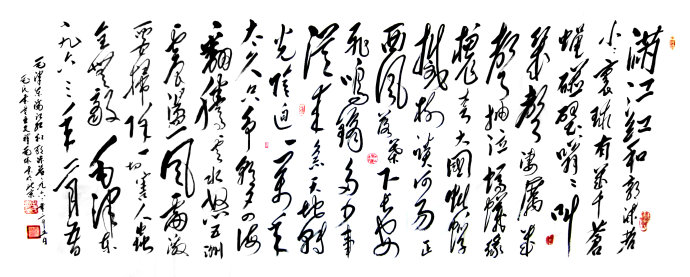 满江红和郭沫若
小小寰球有几个苍
蝇碰壁嗡嗡叫
几声凄厉几
声抽泣蚂蚁缘
槐夸大国蚍蜉
撼树谈何易正
西风落叶下长安
飞鸣镝多少事
从来急天地转
光阴迫一万年
太久只争朝夕四海
翻腾云水怒五洲
震荡风雷激
要扫除一切害人虫
全无敌 毛泽东
一九六三年
毛泽东满江红和郭沫若